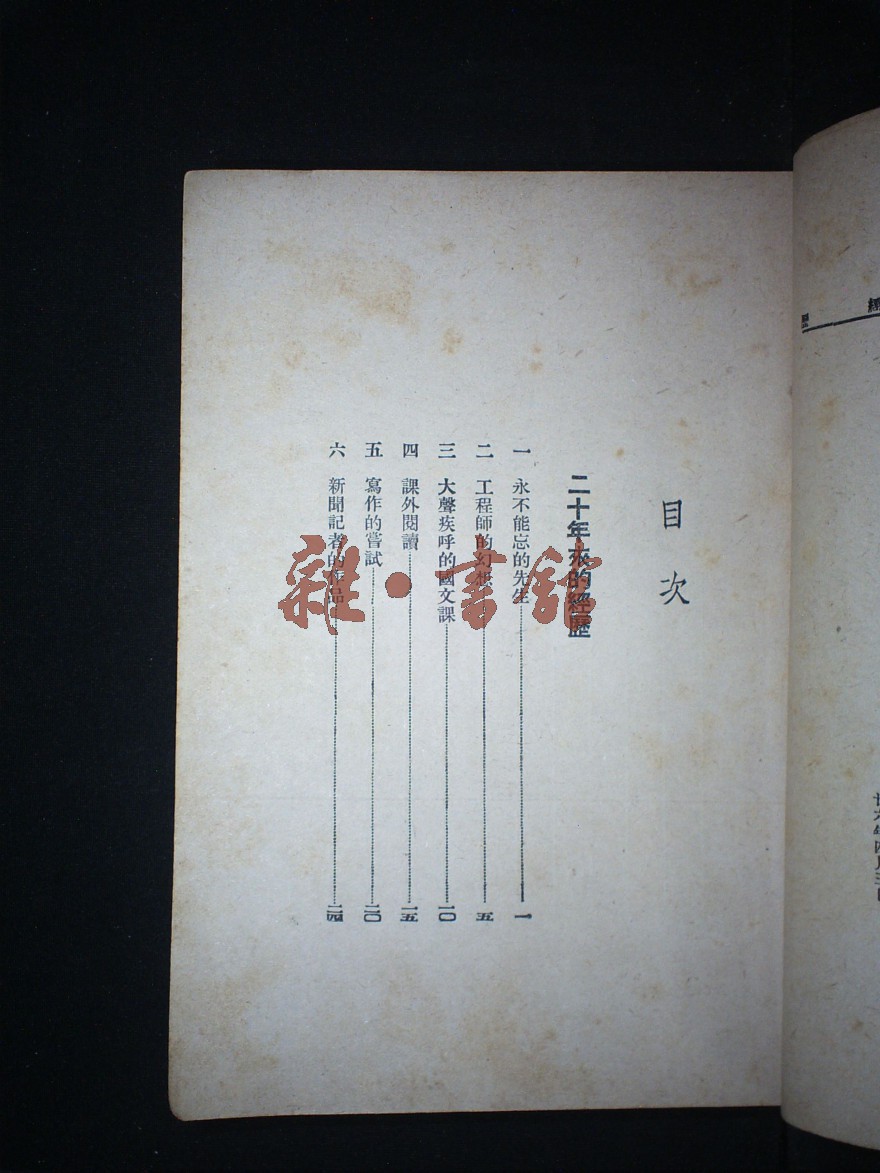 目次
二十年來的經歷
一 永不能忘的先生 一
二 工程師的幻想 五
三 大聲疾呼的國文課 一〇
四 課外閱讀 一五
五 寫作的嘗試 二〇
六 新聞記者的作品 二四
雜·書館